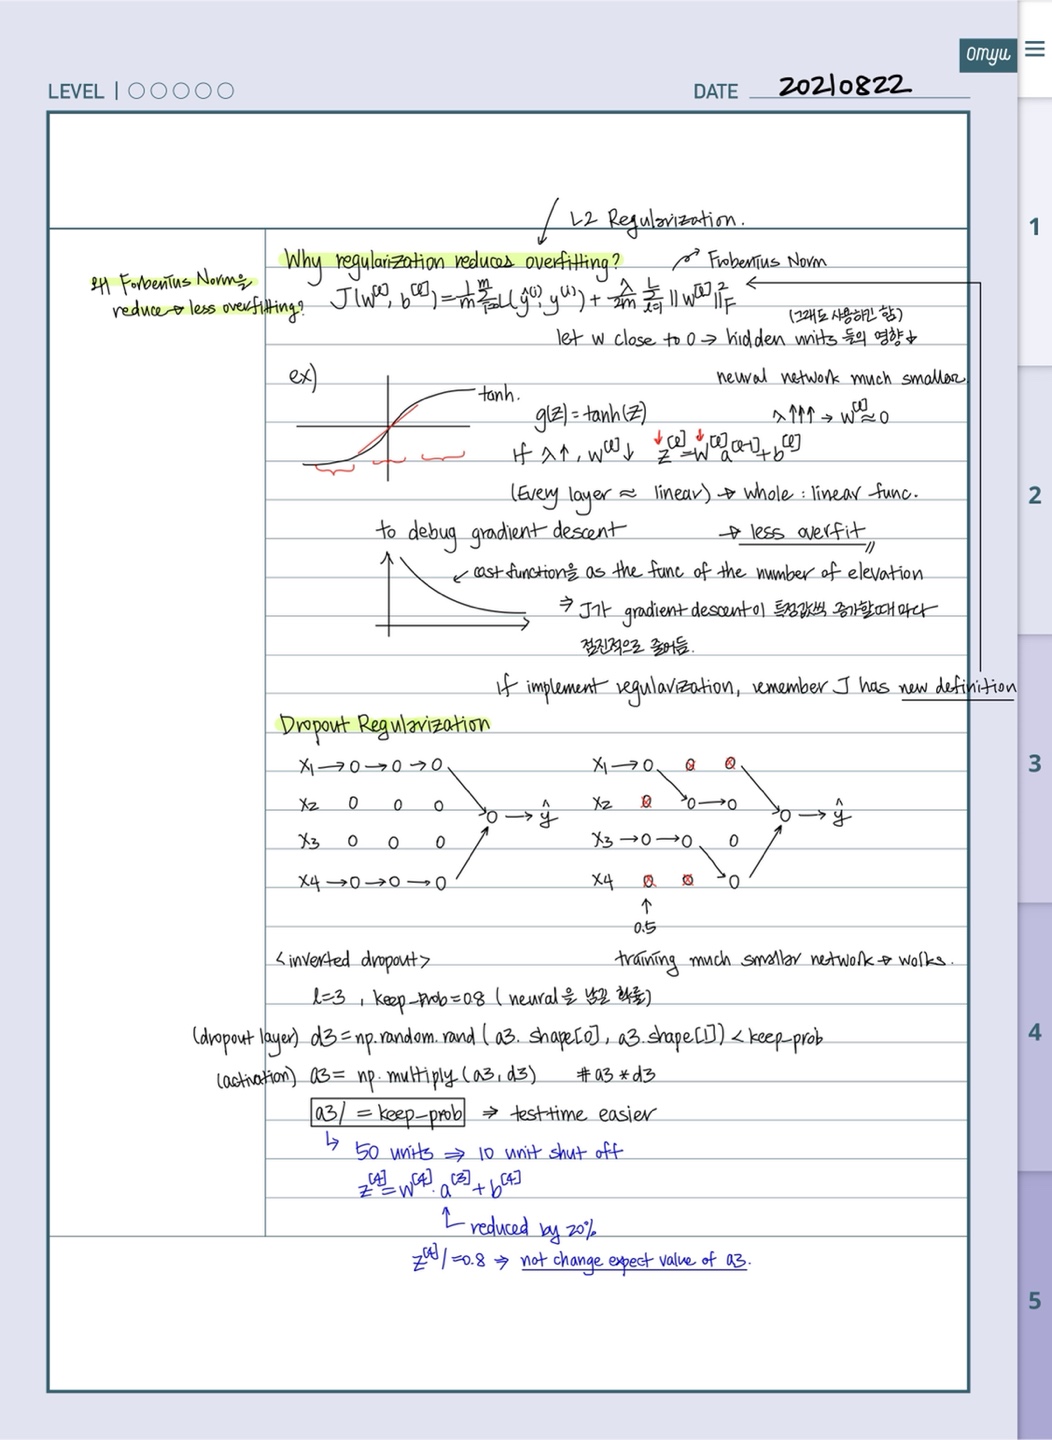 omyu
LEVEL | ○○○○○
DATE 20210822
L2 Regularization.
Why regularization reduces overfitting?
Frobenius Norm
왜 Forbenius Norm을
reduce → less overfitting?
J(w^[l], b^[l]) = 1/m Σ_{i=1}^m L(ŷ^(i), y^(i)) + λ/2m Σ_{l=1}^L ||w^[l]||²_F
(그래도 사용하긴 함)
let w close to 0 → hidden units 들의 영향↓
ex)
neural network much smaller
tanh.
g(z) = tanh(z)
λ↑↑↑ → w^[l] ≈ 0
if λ↑, w^[l]↓ z^[l] = w^[l] a^[l-1] + b^[l]
(Every layer ≈ linear) → whole : linear func.
to debug gradient descent
→ less overfit //
↙ cost function을 as the func of the number of elevation
⇒ J가 gradient descent이 특정값씩 증가할때마다
점진적으로 줄어듬.
if implement regularization, remember J has new definition
Dropout Regularization
X1 → 0 → 0 → 0
X2 0 0 0
0 → ŷ
X3 0 0 0
X4 → 0 → 0 → 0
X1 → 0 0 0
X2 0 0 → 0
0 → ŷ
X3 → 0 → 0 0
X4 0 0 0
↑
0.5
<inverted dropout>
training much smaller network → works.
l=3, keep_prob=0.8 (neural을 남길 확률)
(dropout layer) d3 = np.random.rand(a3.shape[0], a3.shape[1]) < keep_prob
(activation) a3 = np.multiply(a3, d3) # a3 * d3
a3 /= keep_prob ⇒ test time easier
↳ 50 units ⇒ 10 unit shut off
z^[4] = w^[4] · a^[3] + b^[4]
reduced by 20%
z^[4] /= 0.8 ⇒ not change expect value of a3.
1
2
3
4
5